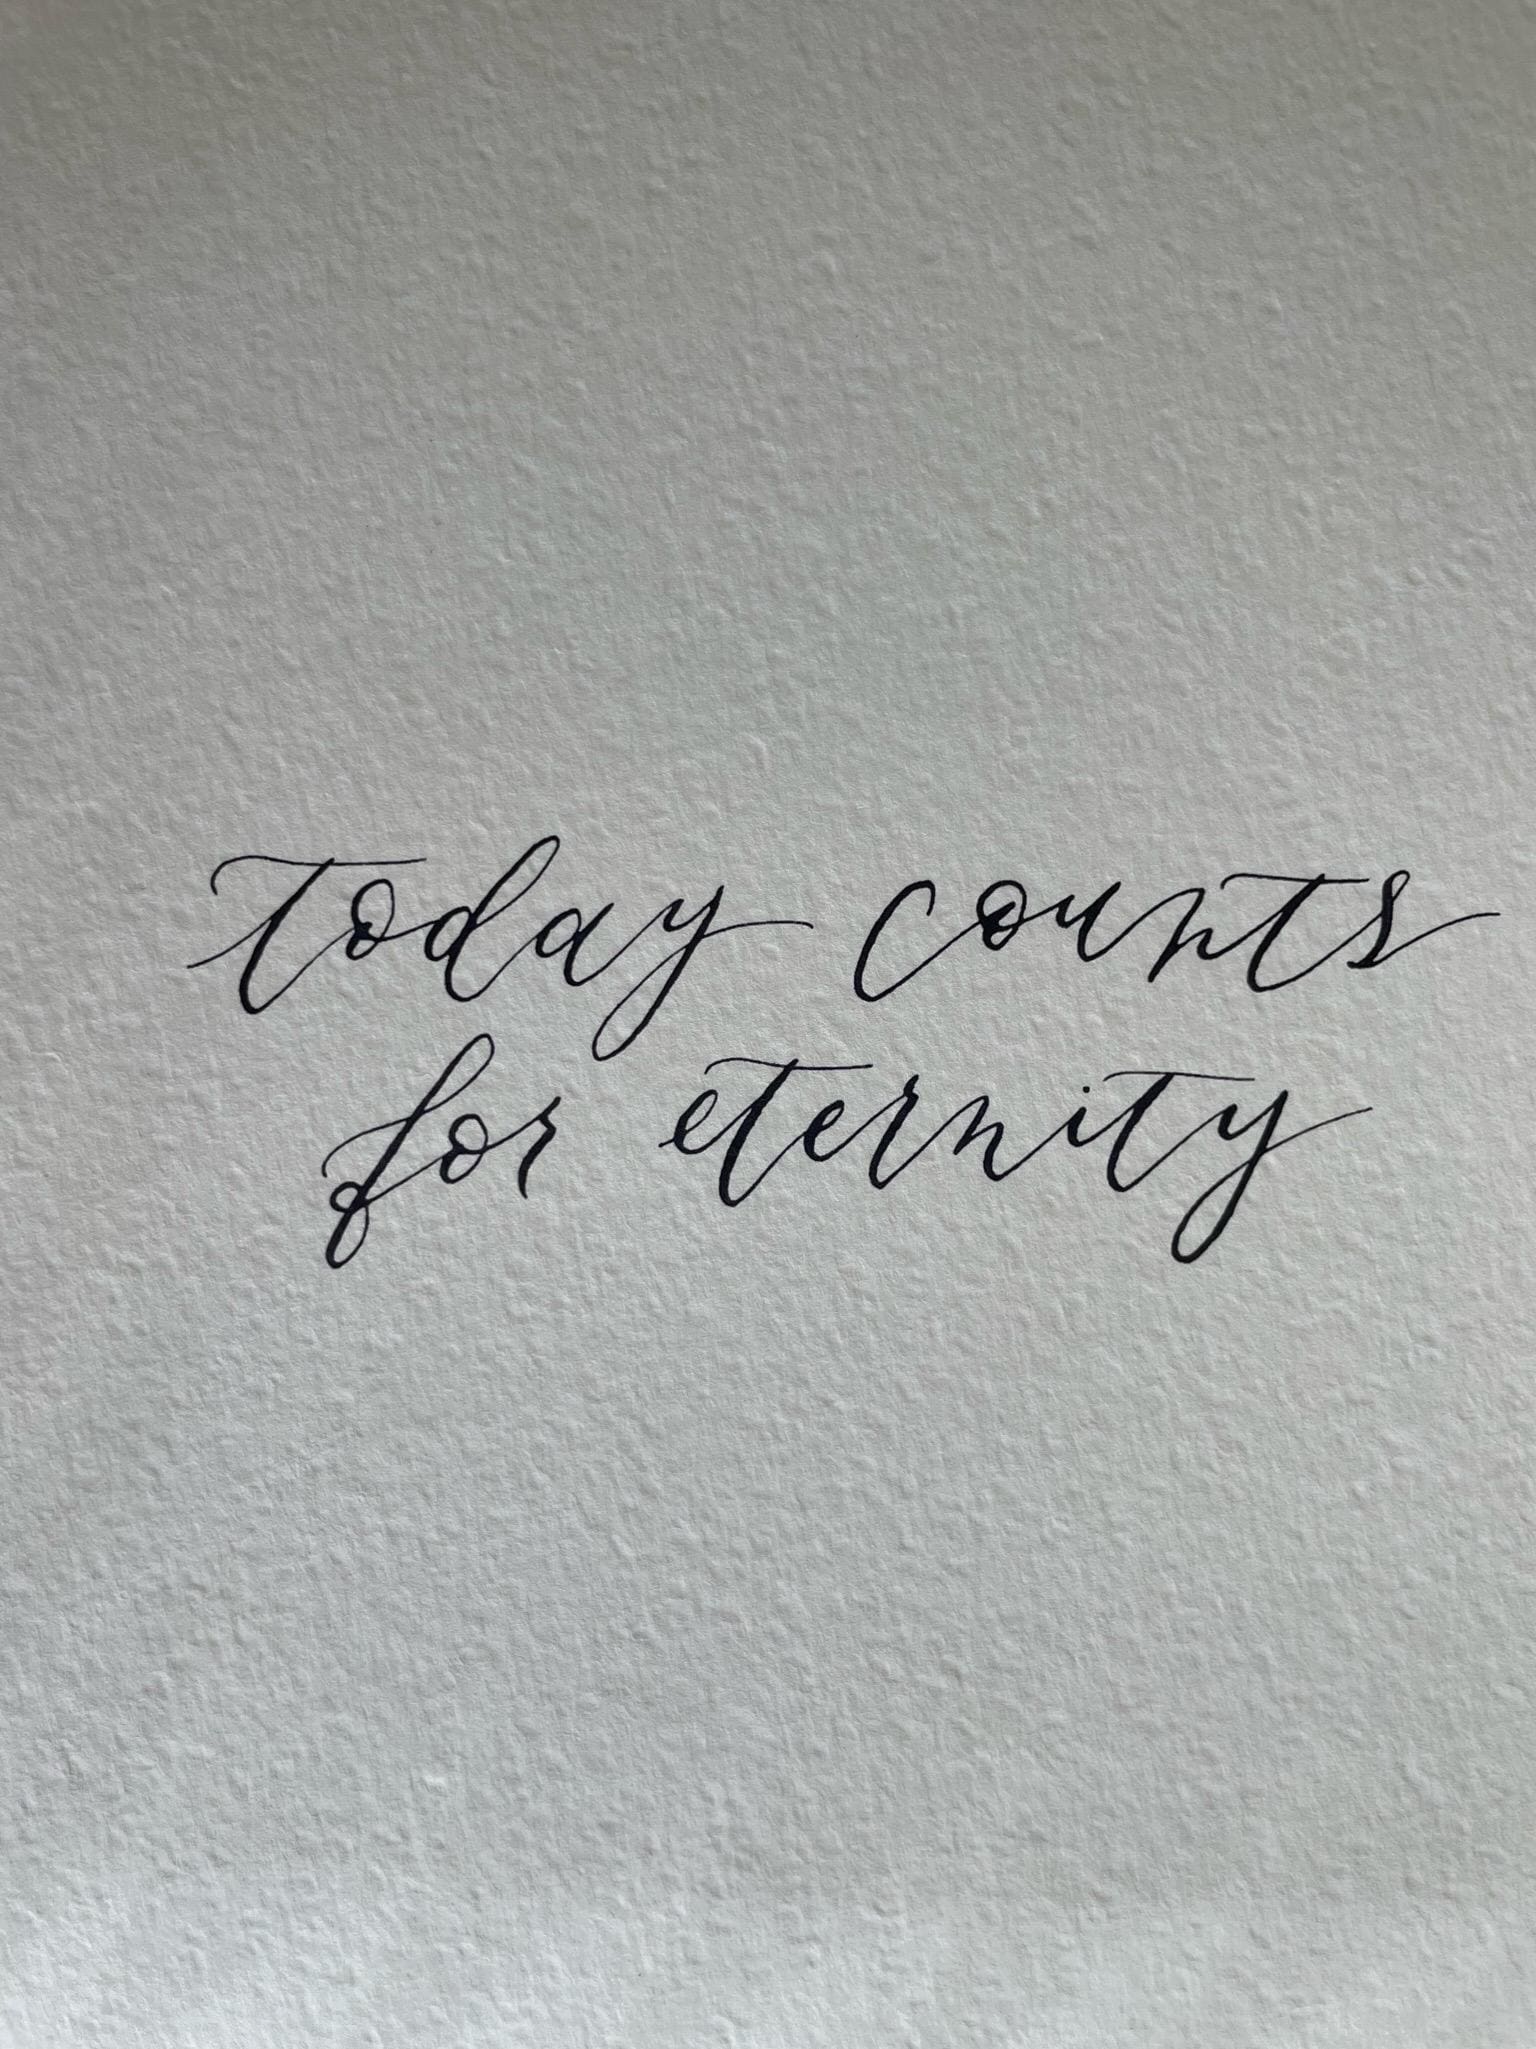 today counts
for eternity